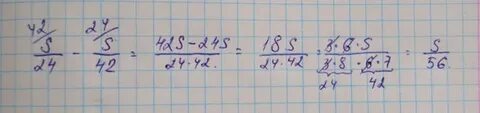 42/ S/24 - 24/ S/42 = 42S-24S/24·42. = 18S/24·42 = 3·6·S/3·8·6·7 = S/56.
24 42